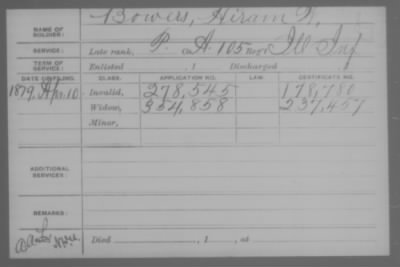 NAME OF SOLDIER: Bowers, Hiram
SERVICE: Late rank, P. Co. A. 105 Reg't Ill Inf
TERM OF SERVICE: Enlisted , 1 Discharged , 1
DATE OF FILING. CLASS. APPLICATION NO. LAW. CERTIFICATE NO.
1879, Apr. 10 Invalid, 278,545 178,780
Widow, 354,858 237,457
Minor,
ADDITIONAL SERVICES:
REMARKS:
Died , 1 , at